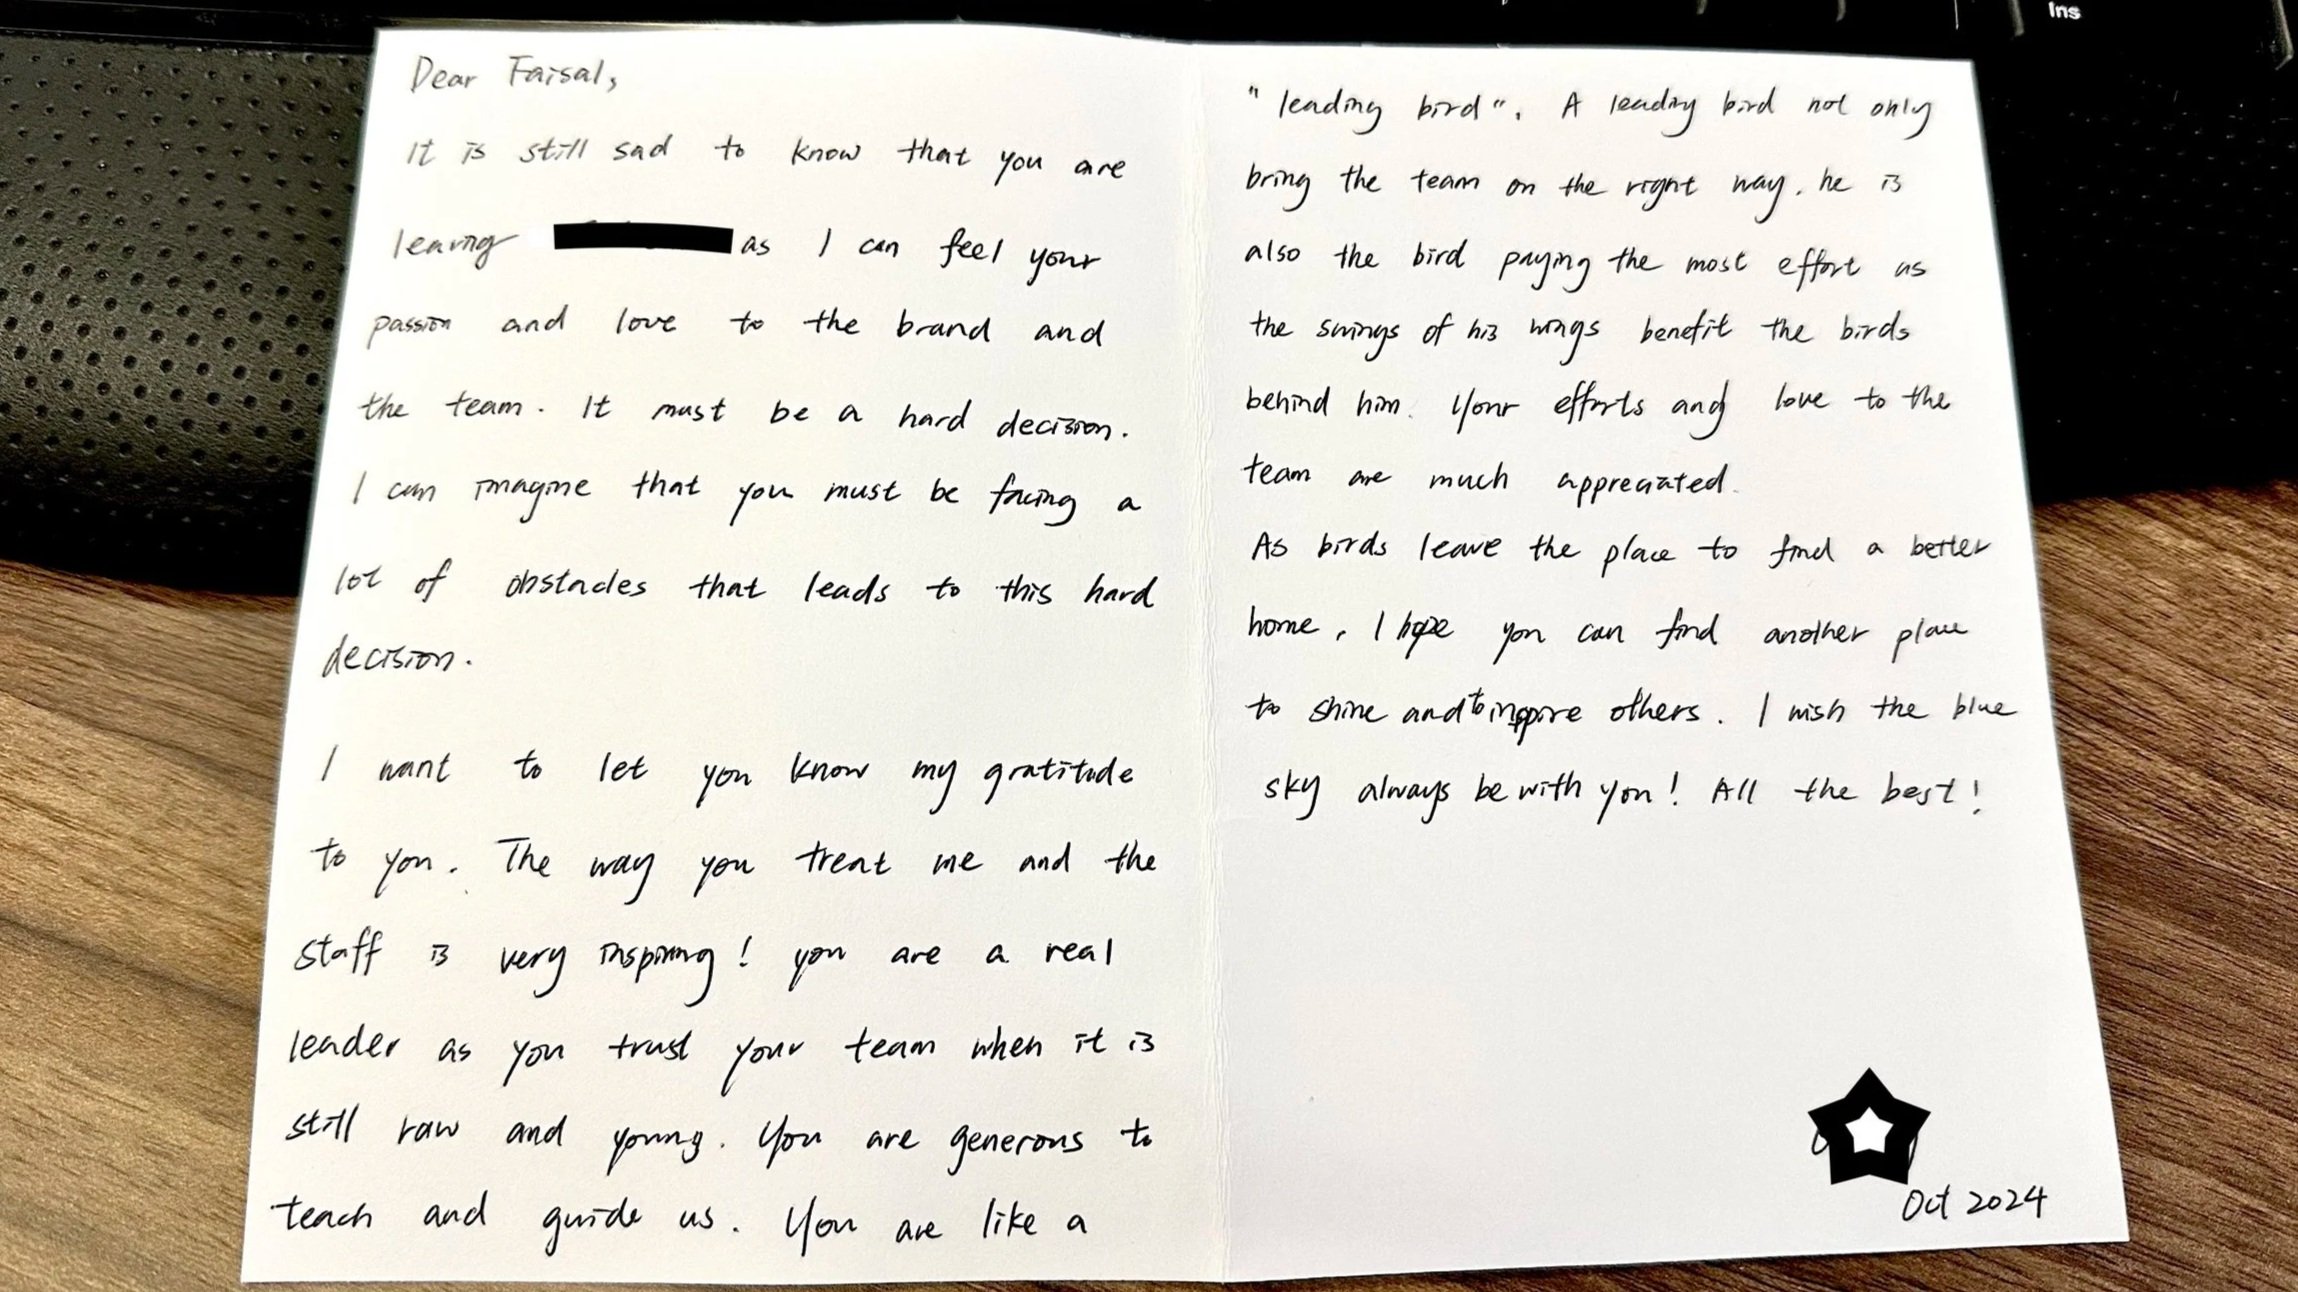 Dear Faisal,
It is still sad to know that you are
leaving as I can feel your
passion and love to the brand and
the team. It must be a hard decision.
I can imagine that you must be facing a
lot of obstacles that leads to this hard
decision.
I want to let you know my gratitude
to you. The way you treat me and the
staff is very inspiring! you are a real
leader as you trust your team when it is
still raw and young. You are generous to
teach and guide us. You are like a
"leading bird". A leading bird not only
bring the team on the right way, he is
also the bird paying the most effort as
the swings of his wings benefit the birds
behind him. Your efforts and love to the
team are much appreciated.
As birds leave the place to find a better
home, I hope you can find another place
to shine and to inspire others. I wish the blue
sky always be with you! All the best!
Oct 2024
Ins